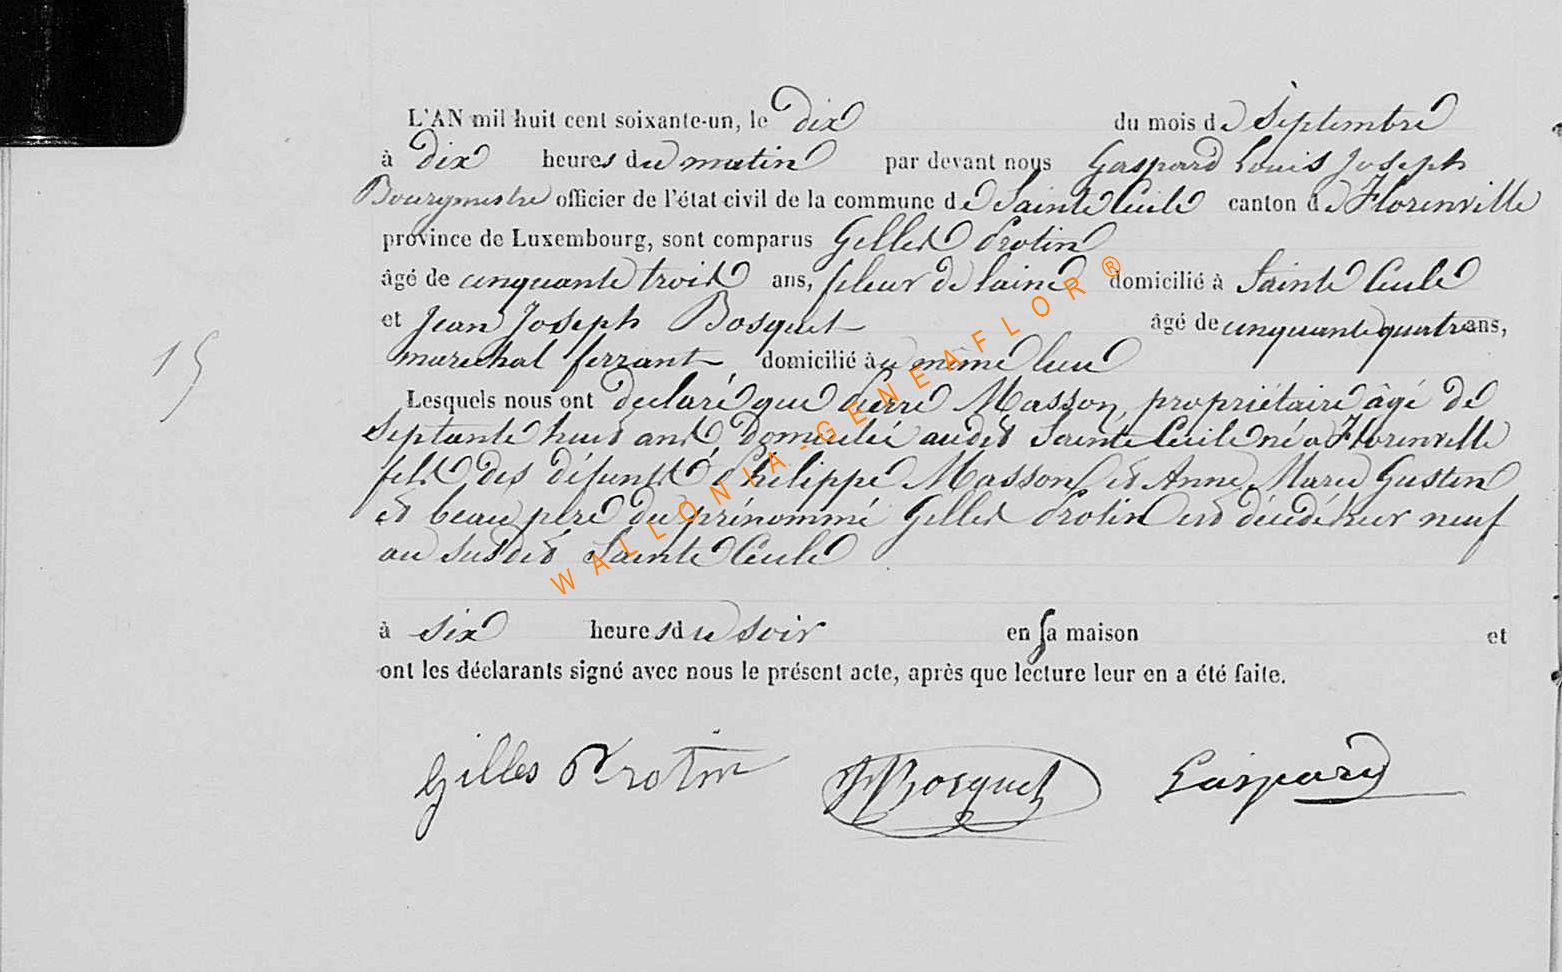 L'AN mil huit cent soixante-un, le dix du mois de Septembre
à dix heures du matin par devant nous Gaspard Louis Joseph
Bourgmestre officier de l'état civil de la commune de Sainte Cécile canton de Florenville
province de Luxembourg, sont comparus Gilles Protin
âgé de cinquante trois ans, fileur de laine domicilié à Sainte Cécile
et Jean Joseph Bosquet âgé de cinquante quatre ans,
marechal ferrant, domicilié à au même lieu
15
Lesquels nous ont declaré que Pierre Masson, propriétaire âgé de
Septante huit ans domicilié audit Sainte Cécile né à Florenville
fils des défunts Philippe Masson et Anne Marie Gustin
et beau père du prénommé Gilles Protin est décédé hier neuf
au susdit Sainte Cécile
à six heures du soir en sa maison et
ont les déclarants signé avec nous le présent acte, après que lecture leur en a été faite.
Gilles Protin JJBosquet Gaspard
WALLONIA-GENEAFLOR®